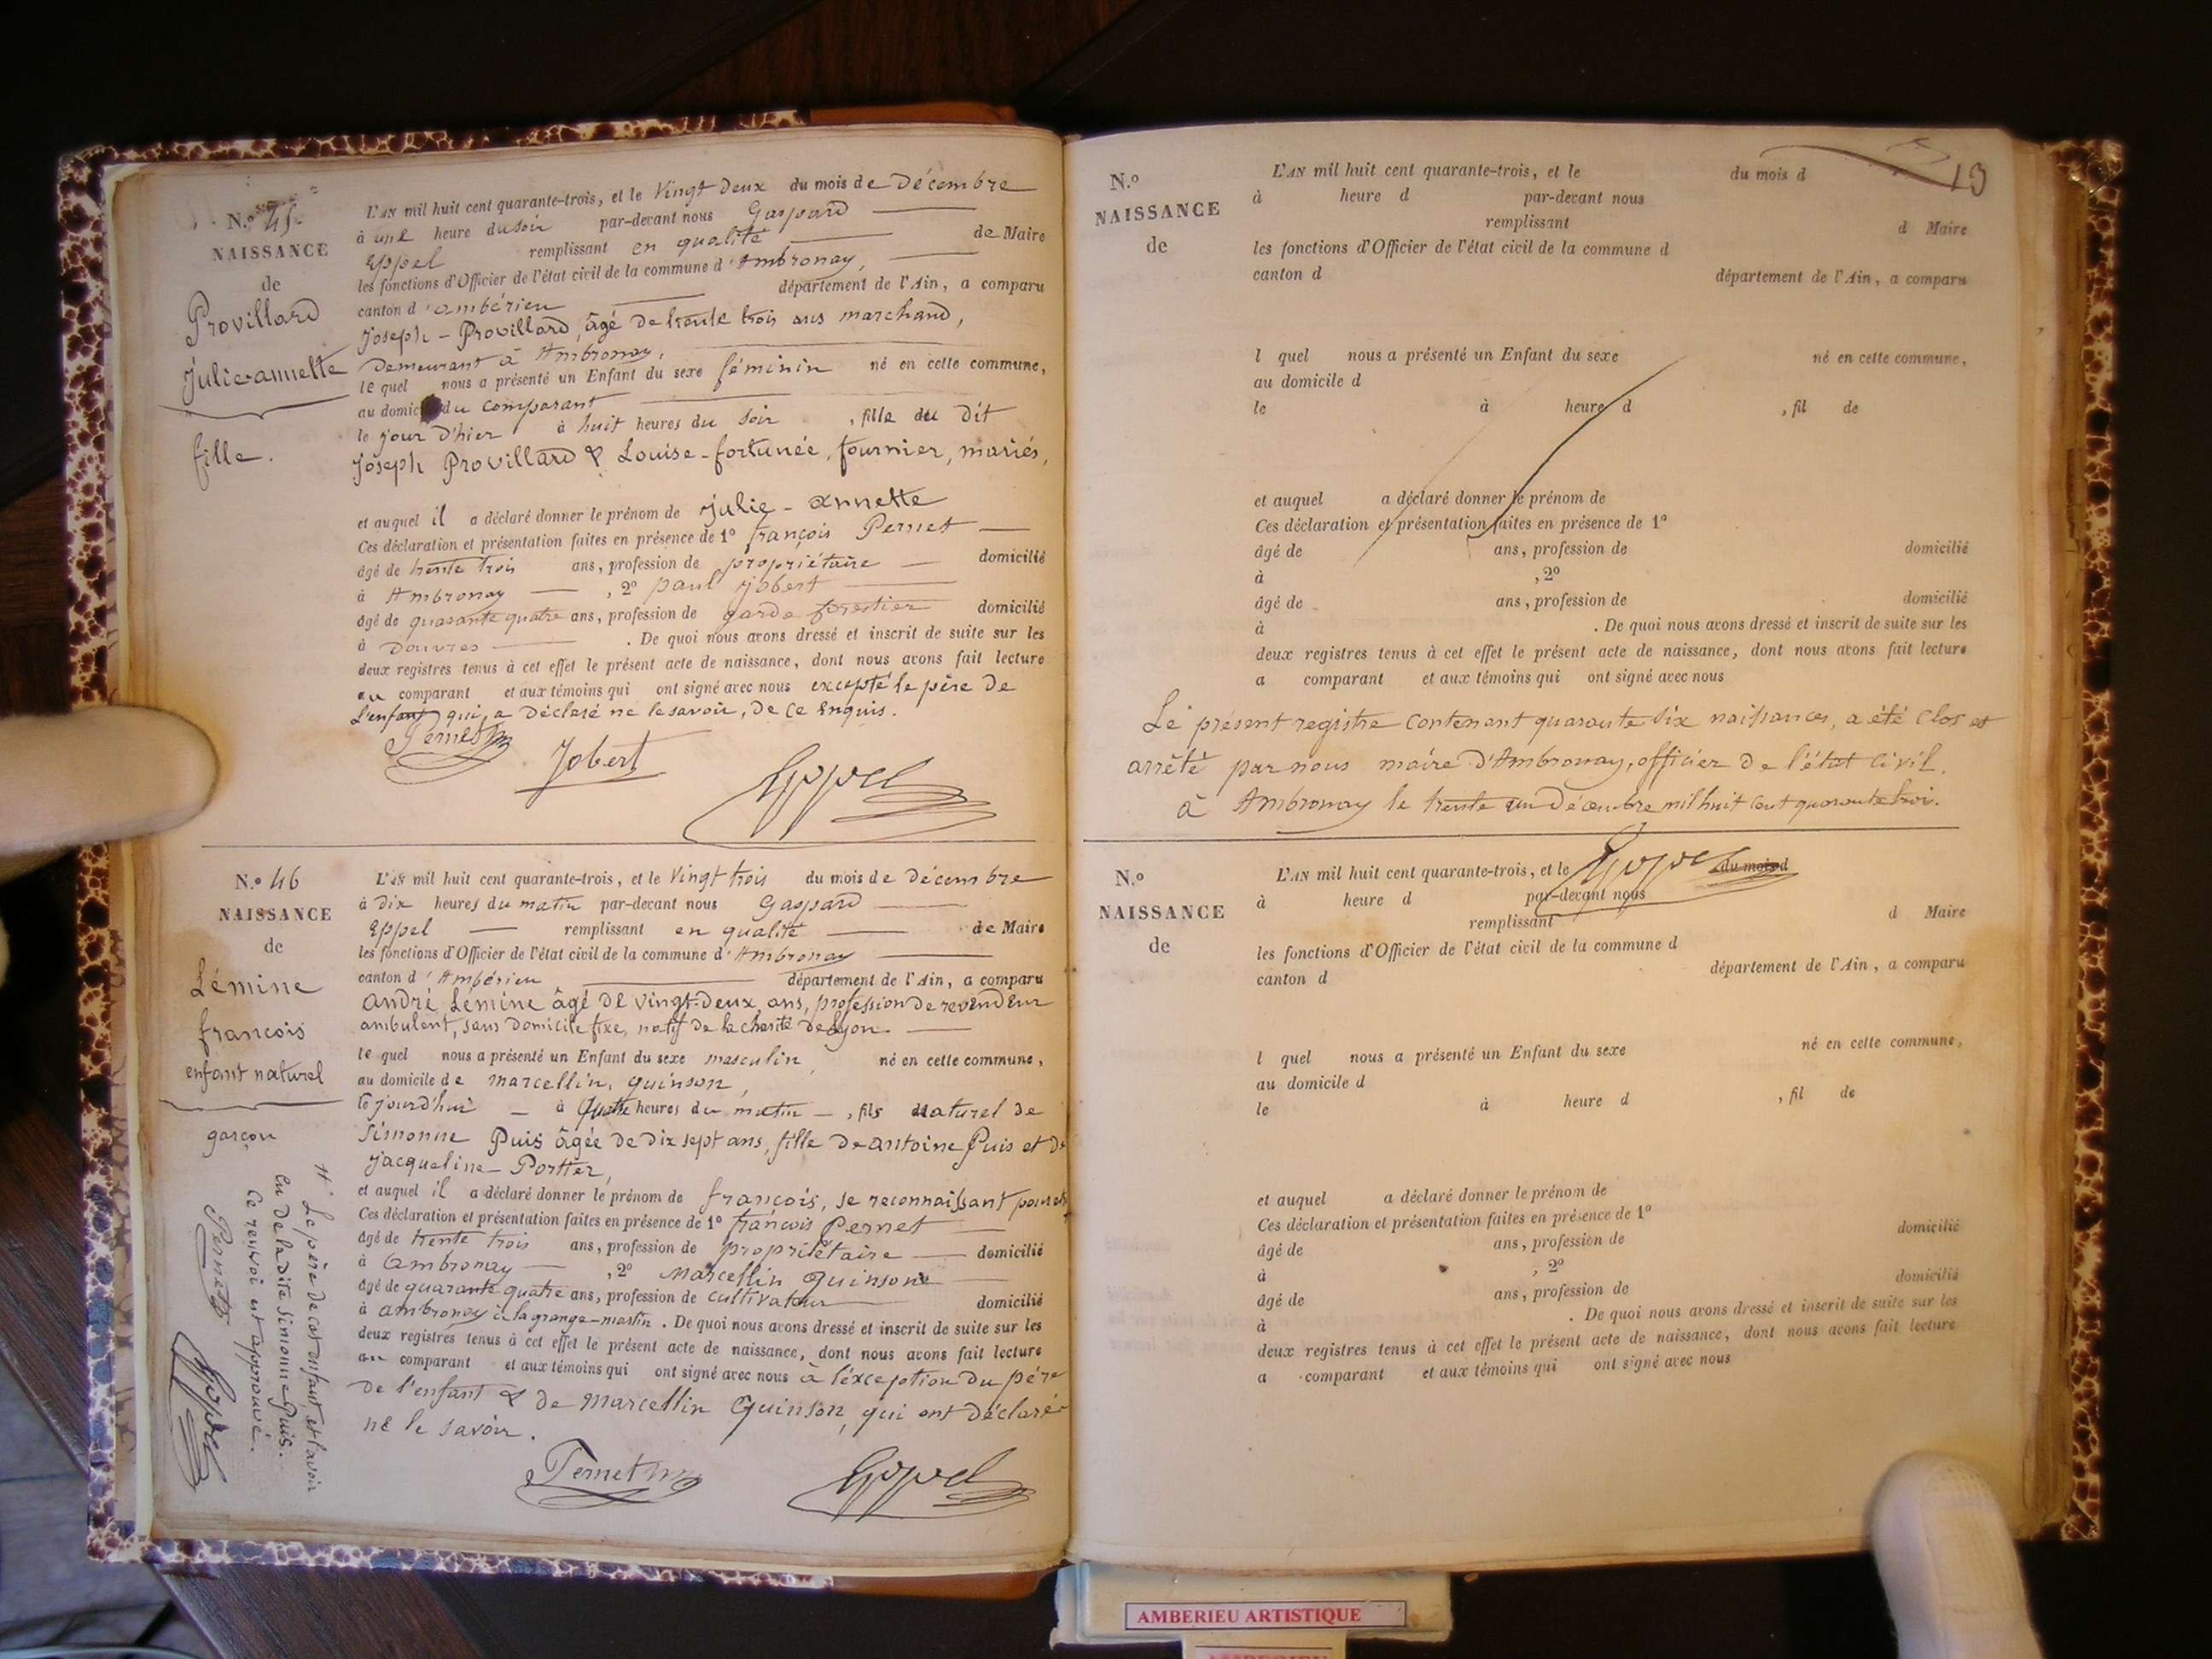 N.º 45.
NAISSANCE
de
Provillard
Julie-annette
fille.
L'AN mil huit cent quarante-trois, et le Vingt Deux du mois de Décembre
à une heure du soir par-devant nous Gaspard
Eppel remplissant en qualité de Maire
les fonctions d'Officier de l'état civil de la commune d'Ambronay,
canton d'ambérieu département de l'Ain, a comparu
Joseph - Provillard, âgé de trente trois ans marchand,
Demeurant à Ambronay,
le quel nous a présenté un Enfant du sexe féminin né en cette commune,
au domicile du comparant
le jour d'hier à huit heures du soir, fille du dit
Joseph Provillard & Louise-fortunée, fournier, mariés,
et auquel il a déclaré donner le prénom de Julie - annette
Ces déclaration et présentation faites en présence de 1º françois Pernet
âgé de trente trois ans, profession de propriétaire domicilié
à Ambronay, 2º paul jobert
âgé de quarante quatre ans, profession de garde forestier domicilié
à Douvres. De quoi nous avons dressé et inscrit de suite sur les
deux registres tenus à cet effet le présent acte de naissance, dont nous avons fait lecture
au comparant et aux témoins qui ont signé avec nous excepté le père de
l'enfant qui, a déclaré ne le savoir, de ce Enquis.
Pernet
Jobert
Eppel
N.º 46
NAISSANCE
de
Lémine
francois
enfant naturel
garçon
L'AN mil huit cent quarante-trois, et le Vingt trois du mois de Décembre
à dix heures du matin par-devant nous Gaspard
Eppel remplissant en qualité de Maire
les fonctions d'Officier de l'état civil de la commune d'Ambronay
canton d'Ambérieu département de l'Ain, a comparu
andré Lémine âgé de vingt-deux ans, profession de revendeur
ambulent, sans domicile fixe, natif de la charité de Lyon.
le quel nous a présenté un Enfant du sexe masculin né en cette commune,
au domicile de marcellin, quinson,
le jourd'hui à quatre heures du matin, fils naturel de
Simonne Puis âgée de dix sept ans, fille de antoine Puis et de
jacqueline Portier,
et auquel il a déclaré donner le prénom de françois, se reconnaissant pour etre
Ces déclaration et présentation faites en présence de 1º francois Pernet
âgé de trente trois ans, profession de propriétaire domicilié
à ambronay, 2º Marcellin Quinson
âgé de quarante quatre ans, profession de cultivateur domicilié
à ambronay à la grange-martin. De quoi nous avons dressé et inscrit de suite sur les
deux registres tenus à cet effet le présent acte de naissance, dont nous avons fait lecture
au comparant et aux témoins qui ont signé avec nous à l'exception du père
de l'enfant & de Marcellin Quinson, qui ont déclaré
ne le savoir.
Pernet
Eppel
Le père de cet enfant, et l'avoir
eu de la dite Simonne Puis.
Ce renvoi est approuvé.
Pernet
Eppel
13
N.º
NAISSANCE
de
L'AN mil huit cent quarante-trois, et le du mois d
à heure d par-devant nous
remplissant d Maire
les fonctions d'Officier de l'état civil de la commune d
canton d département de l'Ain, a comparu
l quel nous a présenté un Enfant du sexe né en cette commune,
au domicile d
le à heure d, fil de
et auquel a déclaré donner le prénom de
Ces déclaration et présentation faites en présence de 1º
âgé de ans, profession de domicilié
à, 2º
âgé de ans, profession de domicilié
à. De quoi nous avons dressé et inscrit de suite sur les
deux registres tenus à cet effet le présent acte de naissance, dont nous avons fait lecture
a comparant et aux témoins qui ont signé avec nous
Le présent registre contenant quarante six naissances, a été clos et
arrêté par nous maire d'Ambronay, officier de l'état civil.
à Ambronay le trente un décembre mil huit cent quarante trois.
Eppel
N.º
NAISSANCE
de
L'AN mil huit cent quarante-trois, et le du mois d
à heure d par-devant nous
remplissant d Maire
les fonctions d'Officier de l'état civil de la commune d
canton d département de l'Ain, a comparu
l quel nous a présenté un Enfant du sexe né en cette commune,
au domicile d
le à heure d, fil de
et auquel a déclaré donner le prénom de
Ces déclaration et présentation faites en présence de 1º
âgé de ans, profession de domicilié
à, 2º
âgé de ans, profession de domicilié
à. De quoi nous avons dressé et inscrit de suite sur les
deux registres tenus à cet effet le présent acte de naissance, dont nous avons fait lecture
a comparant et aux témoins qui ont signé avec nous
AMBERIEU ARTISTIQUE